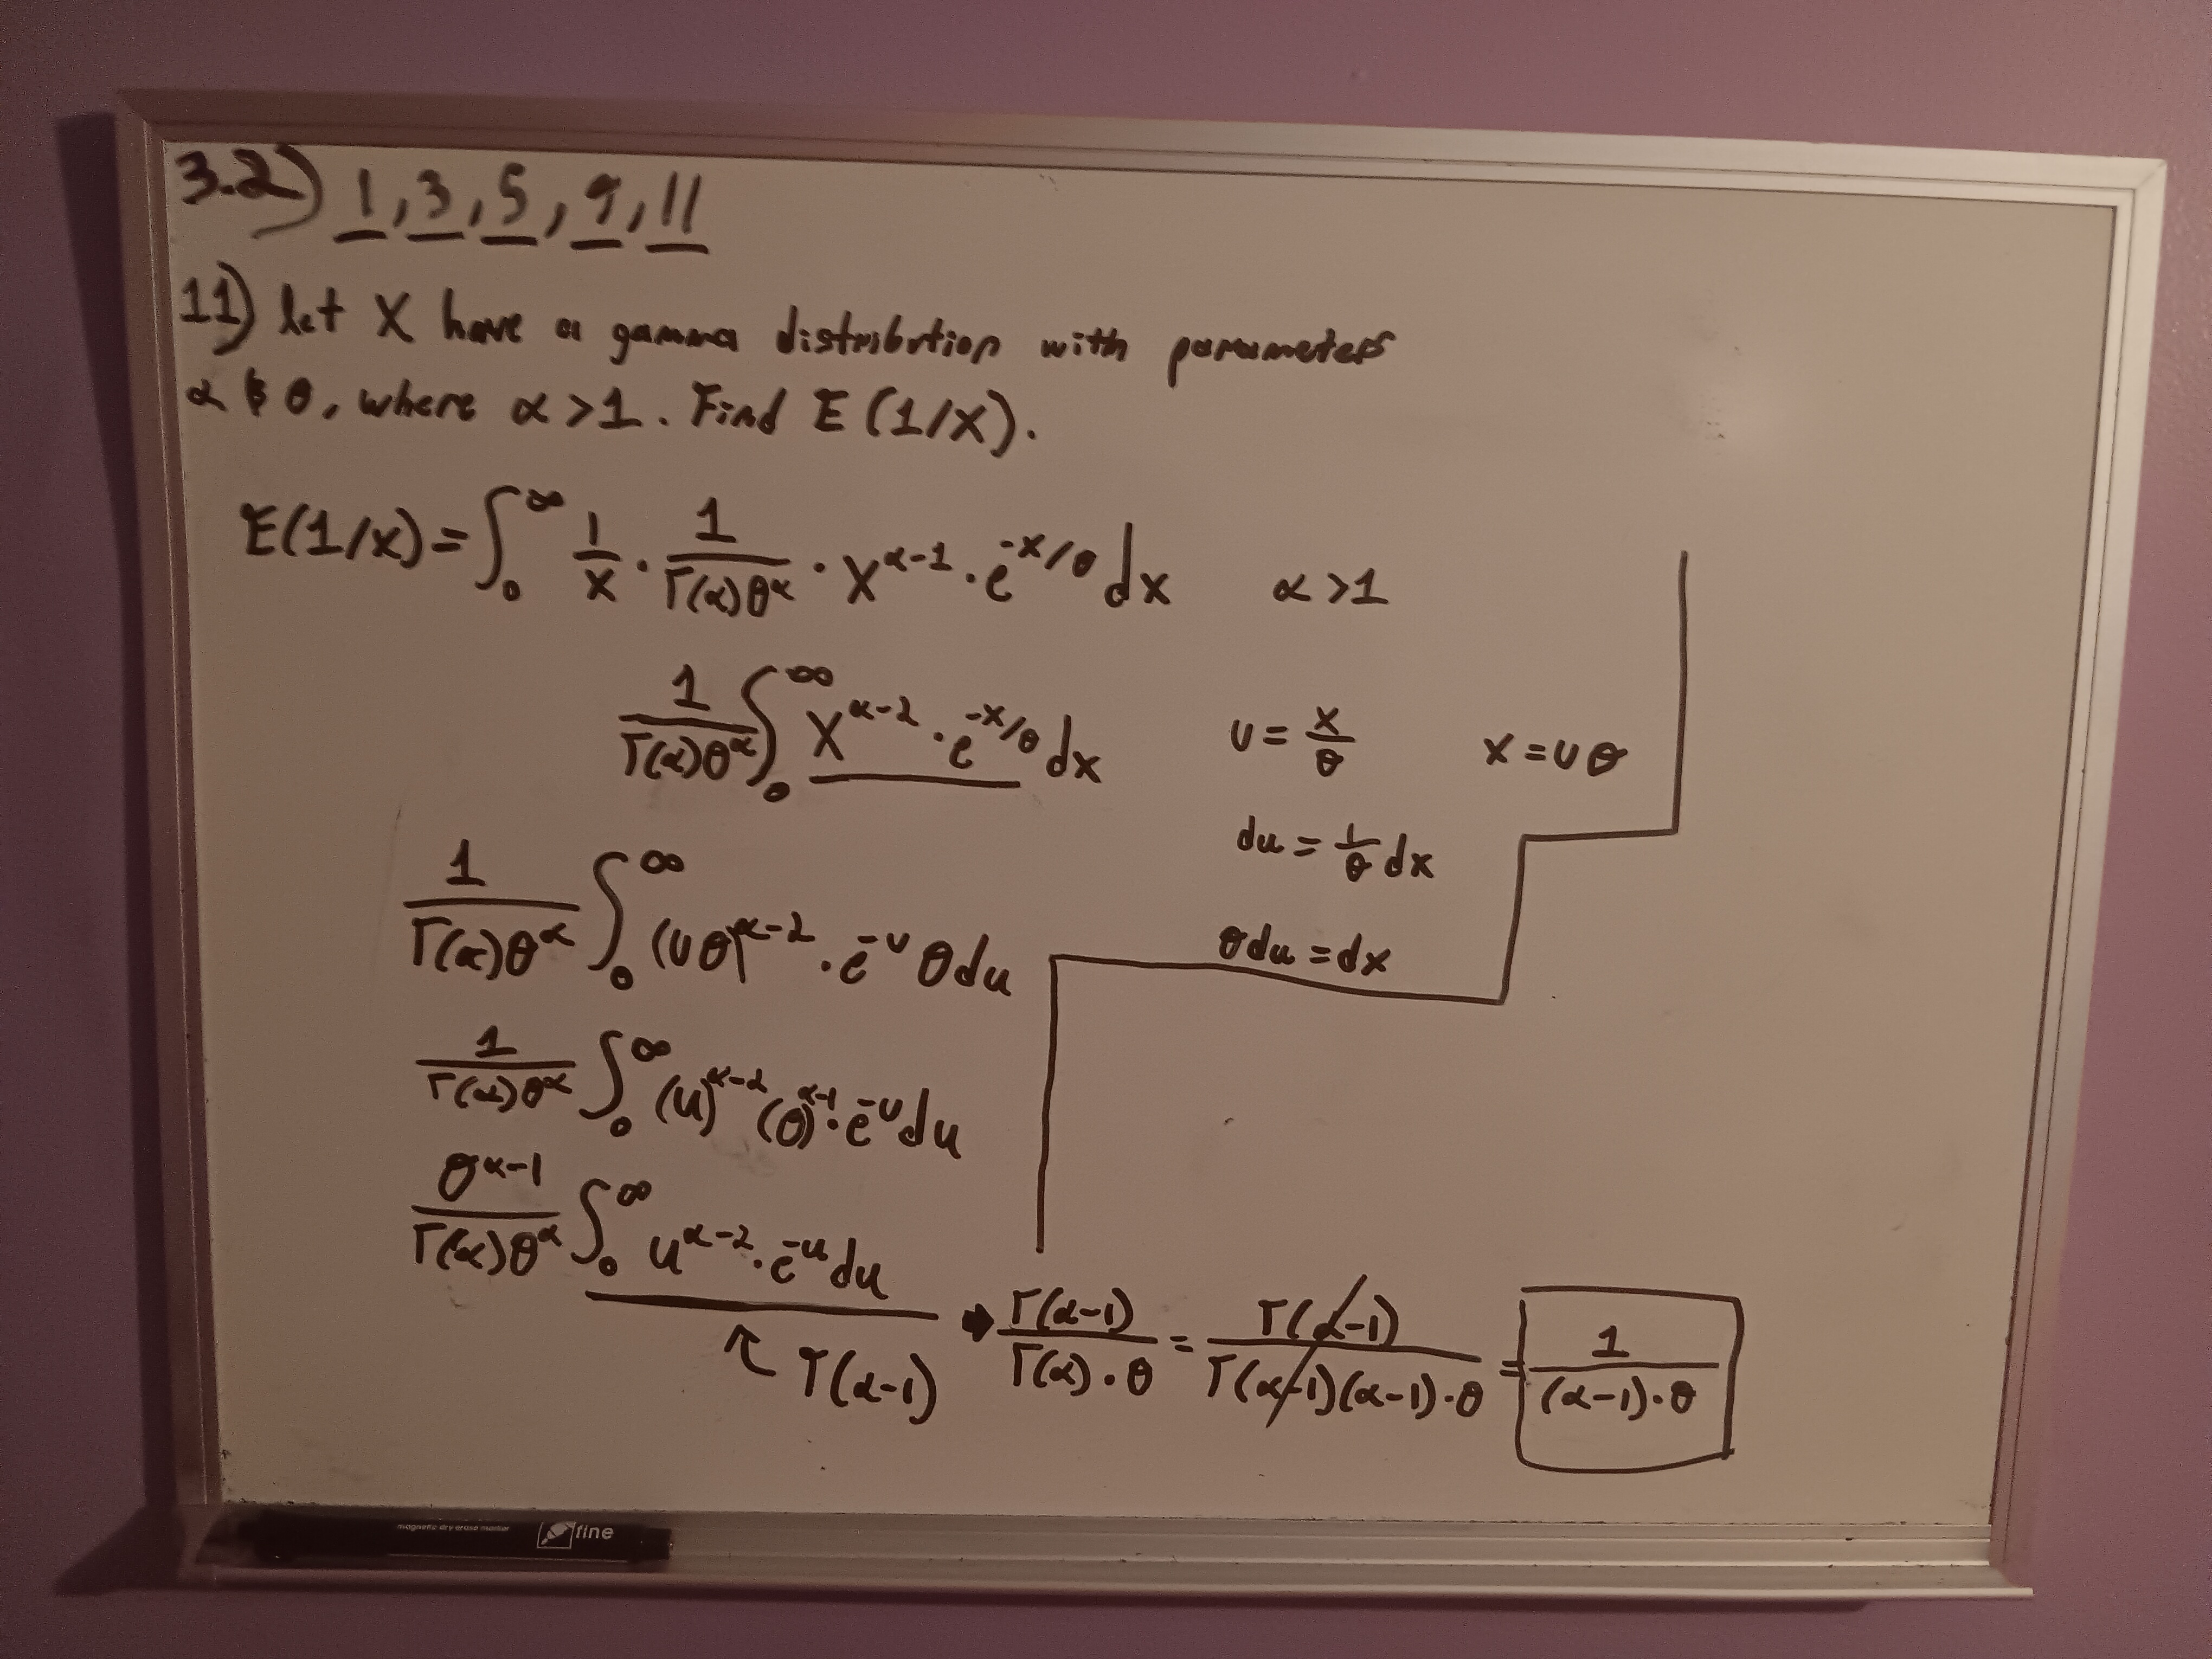 3.2) 1, 3, 5, 9, 11
11) let X have a gamma distribution with parameters
α & θ, where α > 1. Find E(1/X).
E(1/x) = ∫₀^∞ 1/x · 1/(Γ(α)θ^α) · x^(α-1) · e^(-x/θ) dx    α > 1
1/(Γ(α)θ^α) ∫₀^∞ x^(α-2) · e^(-x/θ) dx    u = x/θ    x = uθ
du = 1/θ dx
1/(Γ(α)θ^α) ∫₀^∞ (uθ)^(α-2) · e^(-u) θdu    θdu = dx
1/(Γ(α)θ^α) ∫₀^∞ (u)^(α-2) (θ)^(α-1) · e^(-u) du
θ^(α-1)/(Γ(α)θ^α) ∫₀^∞ u^(α-2) · e^(-u) du
↖ Γ(α-1) → Γ(α-1)/(Γ(α)·θ) = Γ(α-1)/(Γ(α-1)(α-1)·θ) = 1/((α-1)·θ)
magnetic dry erase marker fine